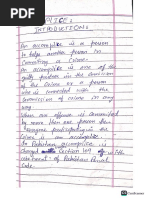 PLICE:
INTRODUCTION:
An accomplice is a person
to help another person to
Committing a Crime.
An accomplice is one of the
guilty partner in the Commission
of the Crime or a person
who is connected with the
Commission of crime in any
way.
When an offence is committed
by more than one person then
everyone participating in the
crime is an accomplice.
In Pakistan accomplice is
Section 109
of Pakistan Penal
Code.
CamScanner